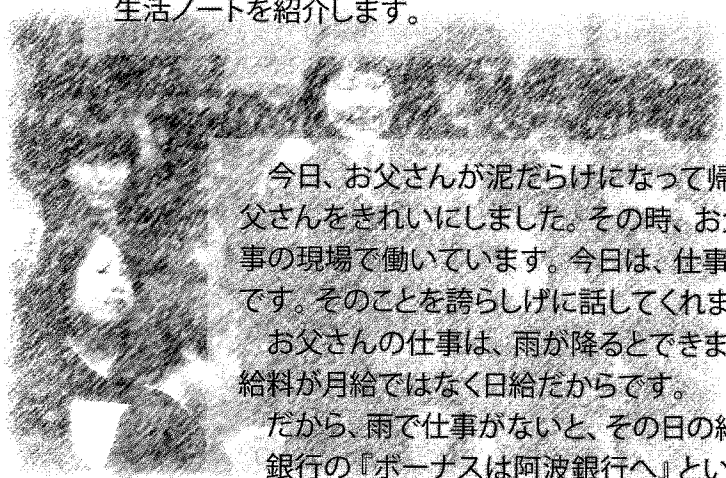 生活ノートを紹介します。
今日、お父さんが泥だらけになって帰
父さんをきれいにしました。その時、お
事の現場で働いています。今日は、仕事
です。そのことを誇らしげに話してくれま
お父さんの仕事は、雨が降るとできま
給料が月給ではなく日給だからです。
だから、雨で仕事がないと、その日の給
銀行の『ボーナスは阿波銀行へ』とい